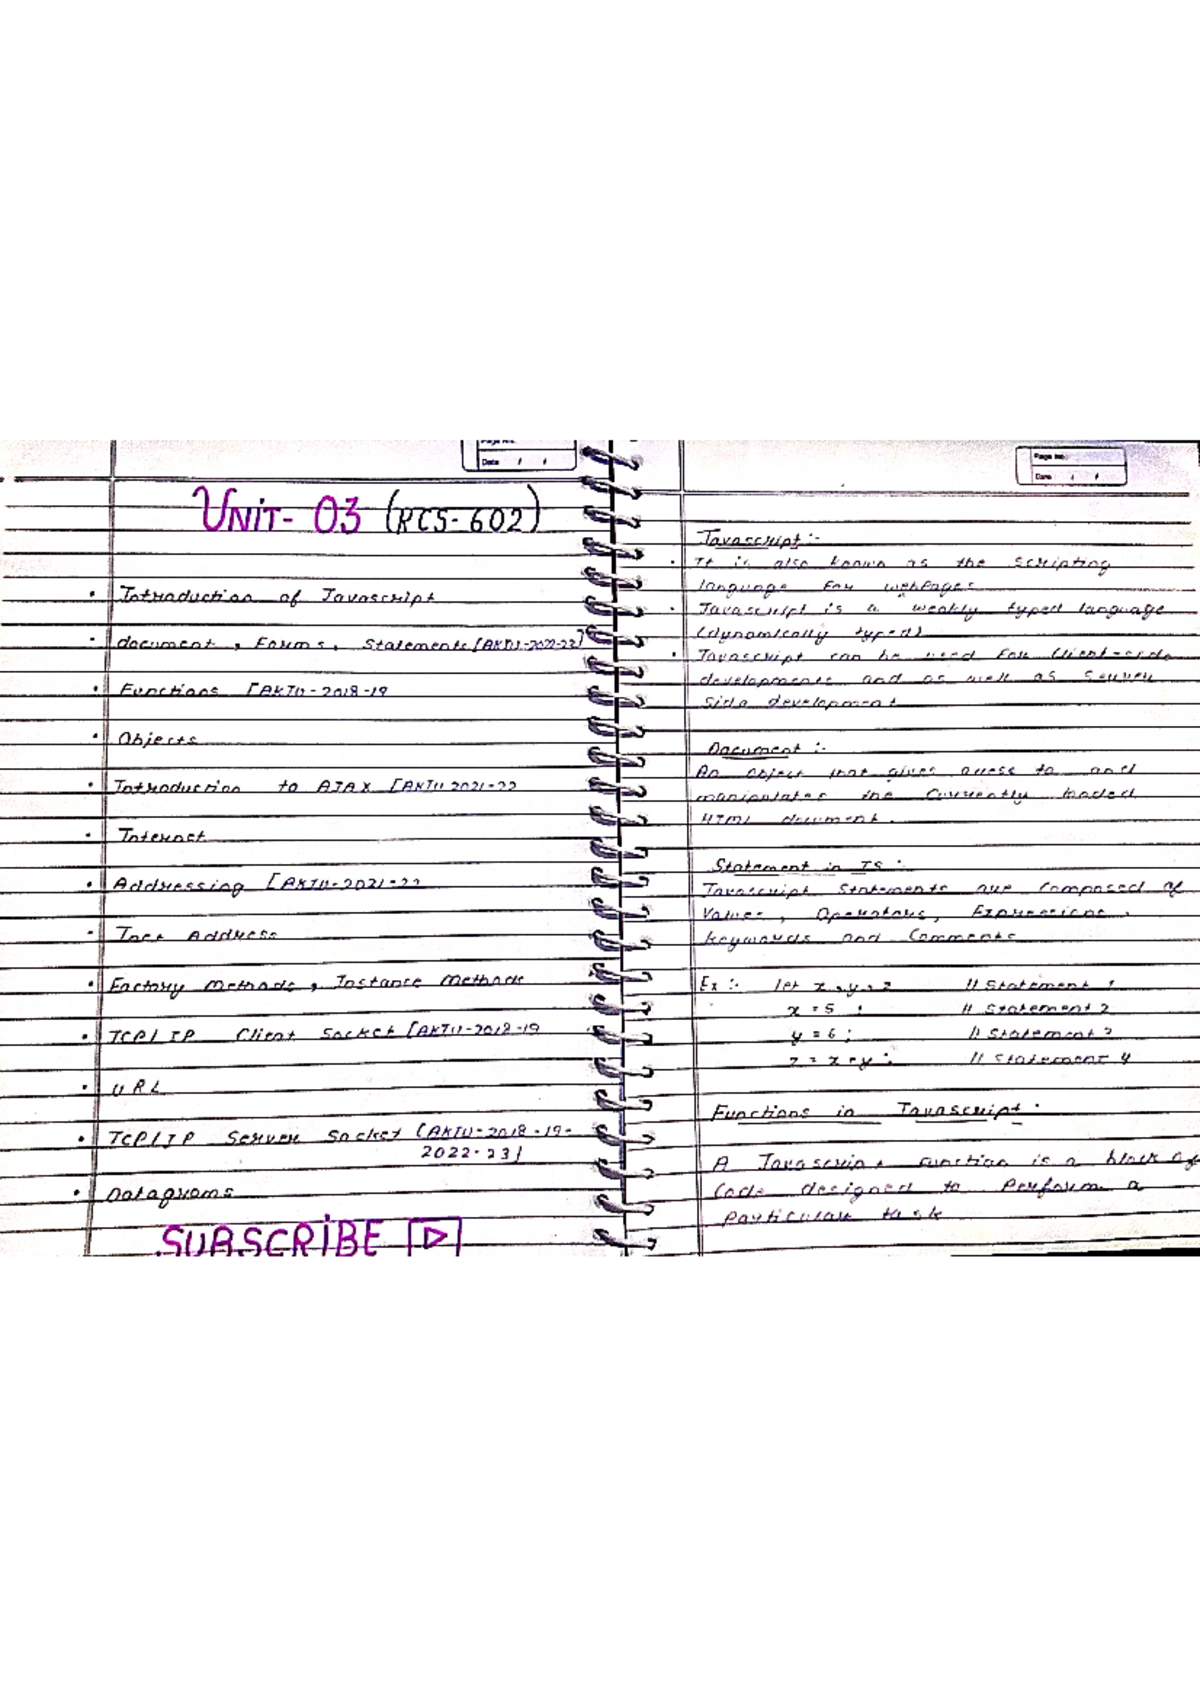 Page No.
Date / /
UNIT- 03 (RCS-602)
• Introduction of Javascript
• document, Forms, Statements [AKTU-2022-22]
• Functions [AKTU-2018-19
• Objects
• Introduction to AJAX [AKTU 2021-22
• Internet
• Addressing [AKTU-2021-22
• Inet Address
• Factory Methods, Instance Methods
• TCP/IP Client Socket [AKTU-2018-19
• URL
• TCP/IP Server Socket [AKTU-2018-19-
2022-23]
• Datagrams
SUBSCRIBE
Page No.
Date / /
Javascript :-
• It is also known as the scripting
language for webPages
• Javascript is a weakly typed language
(dynamically typed)
• Javascript can be used for Client-side
developments and as well as Server
side development
Document :-
An object that gives access to and
manipulates the Currently loaded
HTML document.
Statement in JS :-
Javascript Statements are Composed of
Values, Operators, Expressions,
keywords and Comments
Ex :- let x, y, z // Statement 1
x = 5 ; // Statement 2
y = 6 ; // Statement 3
z = x + y ; // Statement 4
Functions in Javascript :
A Javascript function is a block of
Code designed to Perform a
Particular task